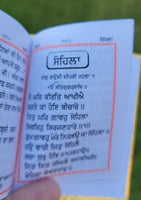 ਸੋਹਿਲਾ
ਸੋਹਿਲਾ
ਰਾਗੁ ਗਉੜੀ ਦੀਪਕੀ ਮਹਲਾ ੧
ੴ ਸਤਿਗੁਰਪ੍ਰਸਾਦਿ॥
ਜੈ ਘਰਿ ਕੀਰਤਿ ਆਖੀਐ
ਕਰਤੇ ਕਾ ਹੋਇ ਬੀਚਾਰੋ॥
ਤਿਤੁ ਘਰਿ ਗਾਵਹੁ ਸੋਹਿਲਾ
ਸਿਵਰਿਹੁ ਸਿਰਜਣਹਾਰੋ॥੧॥
ਤੁਮ ਗਾਵਹੁ ਮੇਰੇ ਨਿਰਭਉ ਕਾ ਸੋਹਿਲਾ॥
ਹਉ ਵਾਰੀ ਜਿਤੁ ਸੋਹਿਲੈ
ਸਦਾ ਸੁਖੁ ਹੋਇ॥੧॥ਰਹਾਉ॥
ਨਿਤ ਨਿਤ ਜੀਅੜੇ ਸਮਾਲੀਅਨਿ
ਦੇਖੈਗਾ ਦੇਵਣਹਾਰੁ॥